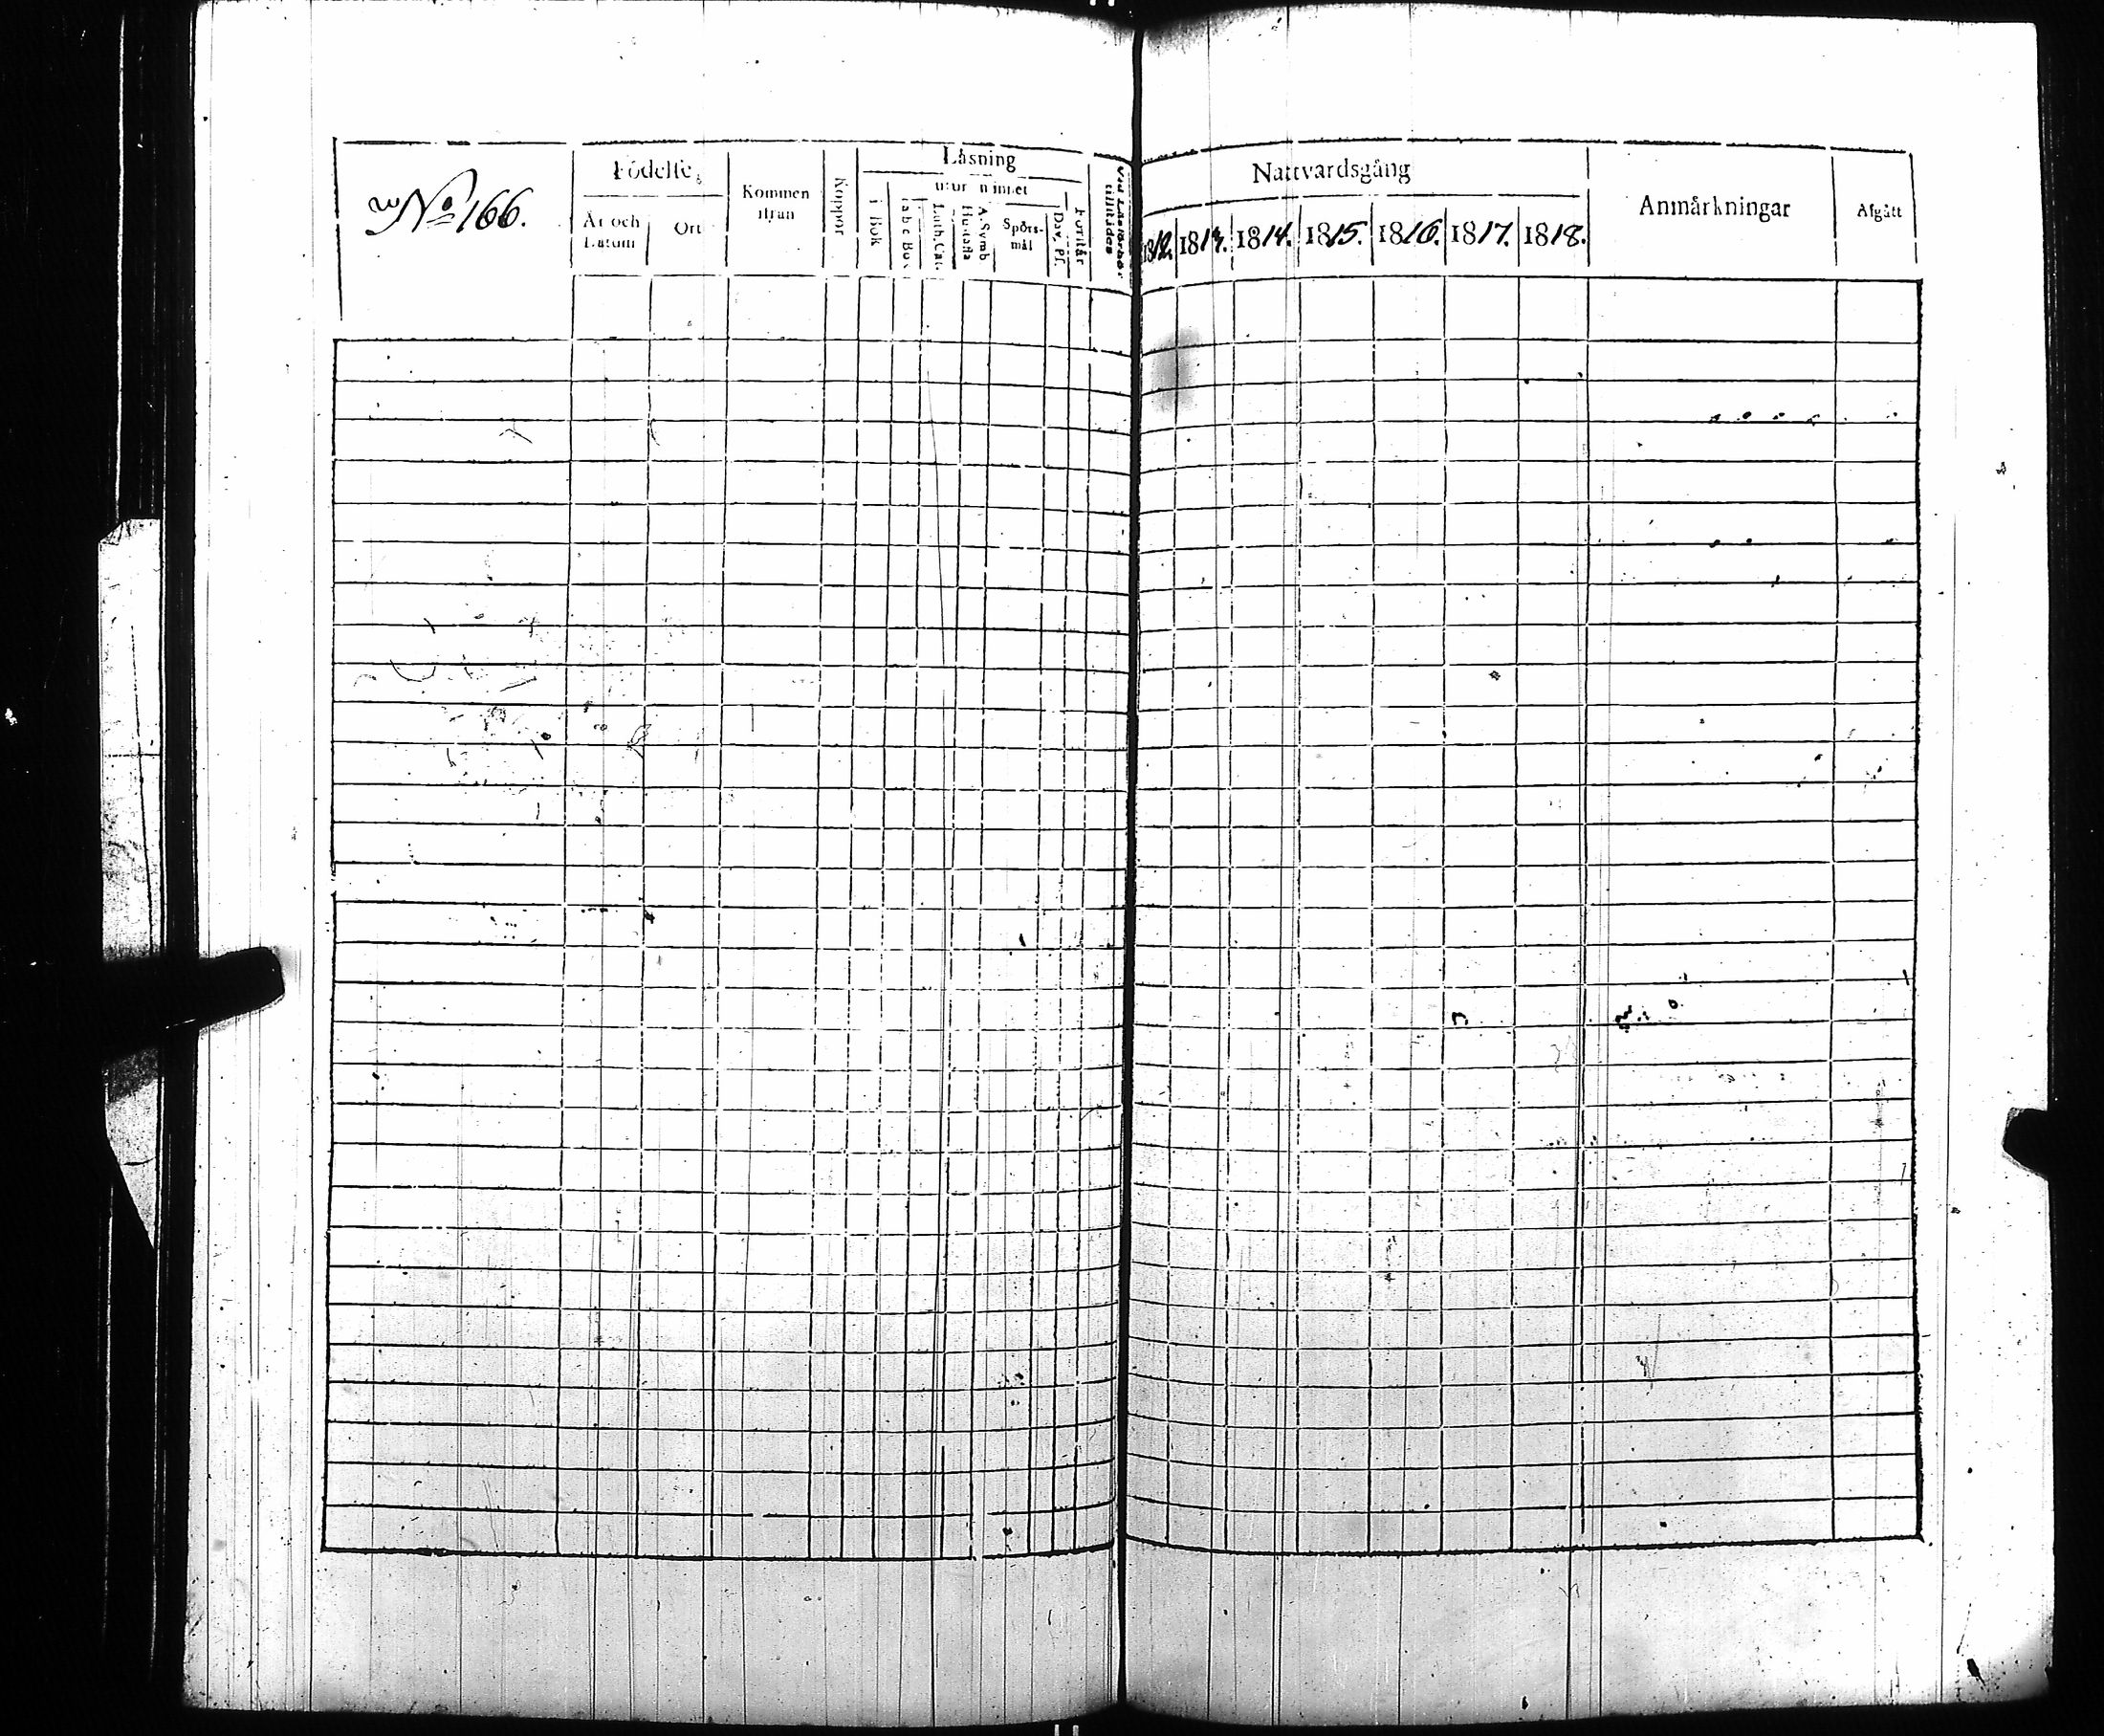 No 166.
Födelse
År och Datum
Ort
Kommen ifrån
Koppor
Läsning
i Bok
utur minnet
Luth. Cat.
A. Symb
Hustafla
Spörsmål
Dav. Ps.
Förstår
Nattvardsgång
1812. 1813. 1814. 1815. 1816. 1817. 1818.
Anmärkningar
Afgått